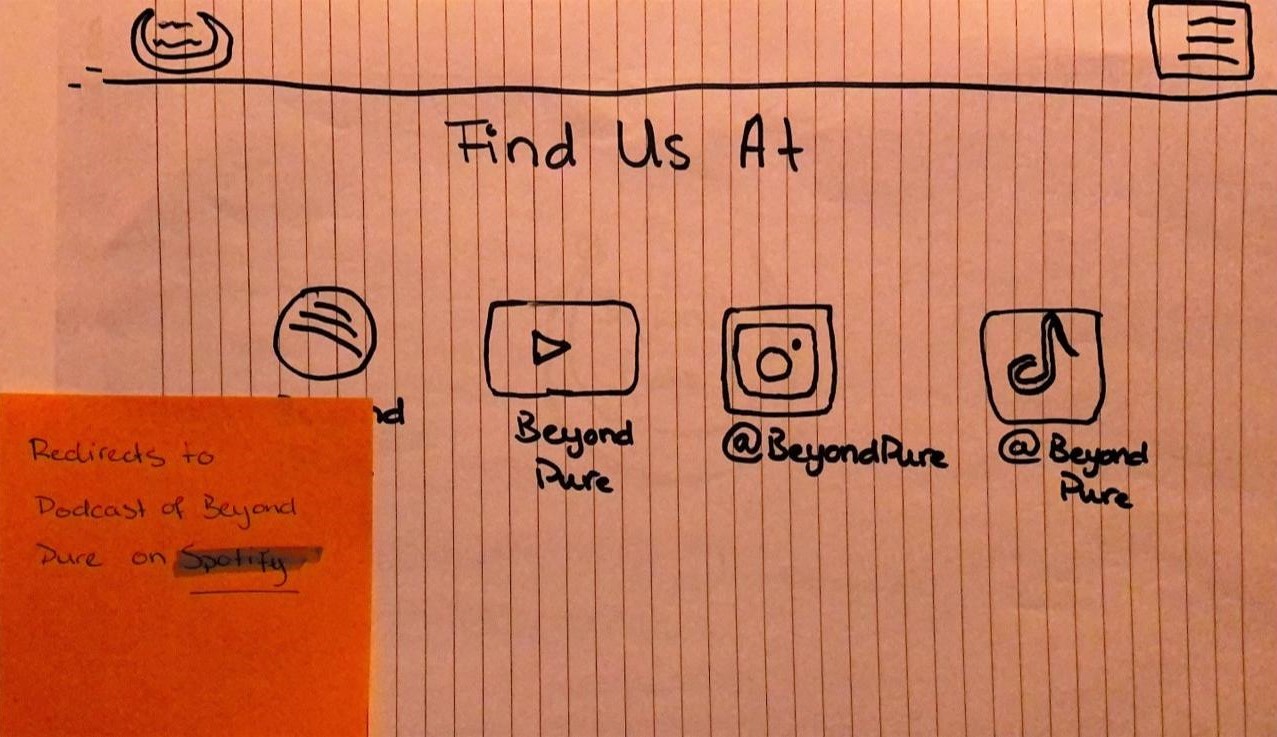 Find Us At
nd
Beyond
Pure
@BeyondPure
@Beyond
Pure
Redirects to
Podcast of Beyond
Pure on Spotify